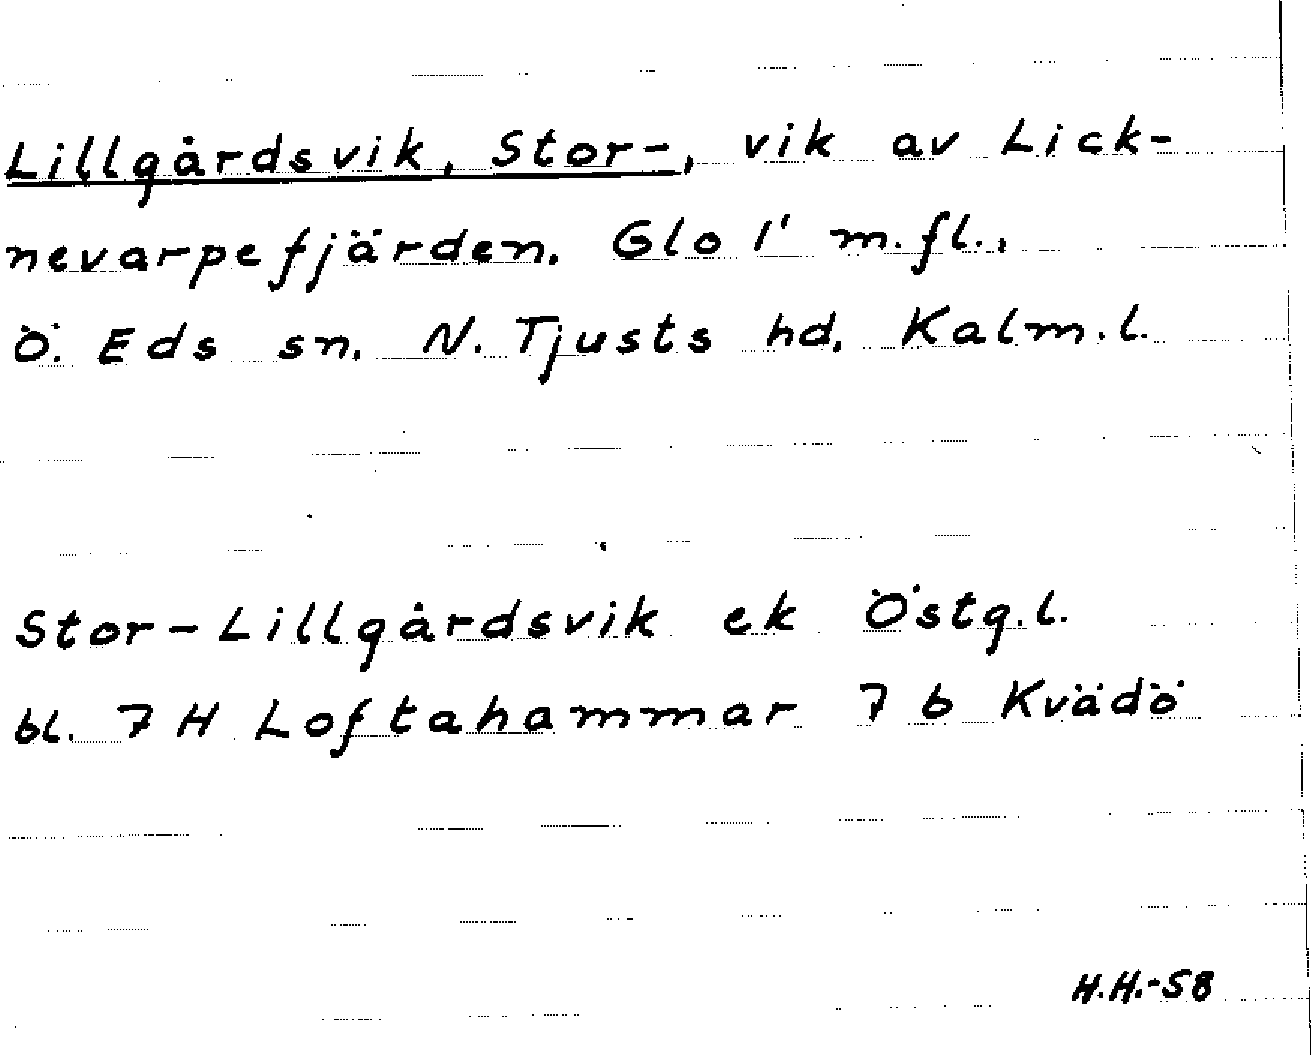 Lillgårdsvik, Stor-, vik av Lick-
nevarpefjärden. Glo 1' m.fl.,
Ö. Eds sn. N. Tjusts hd. Kalm.l.
Stor-Lillgårdsvik ek Östg.l.
bl. 7 H Loftahammar 7 b Kvädö
H.H.-58